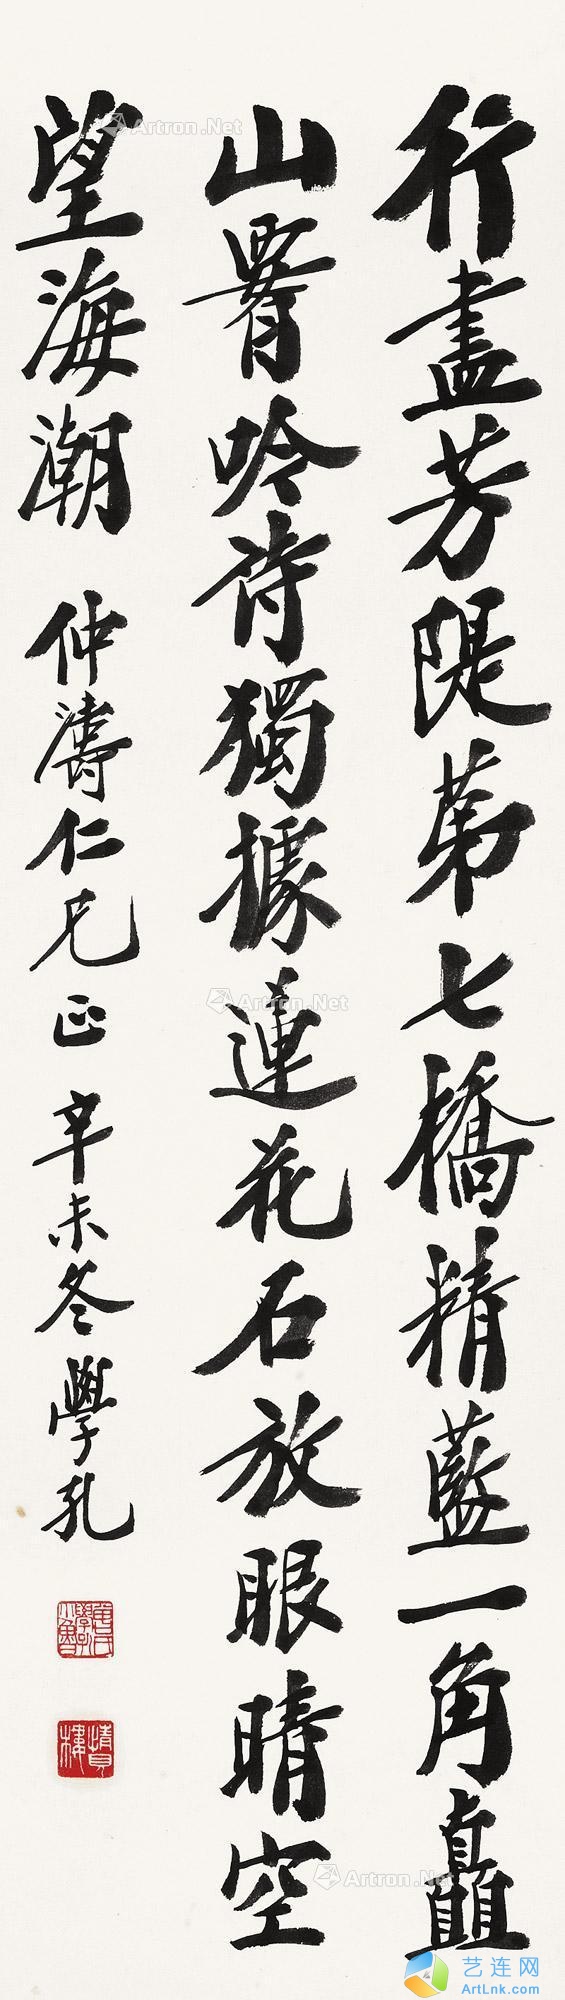 行盡芳隄第七橋精藍一角矗
山腰吟詩獨據蓮花石放眼晴空
望海潮 仲濤仁兄正 辛未冬學孔
Artron.Net
Artron.Net
Artron.Net
艺连网
ArtLnk.com